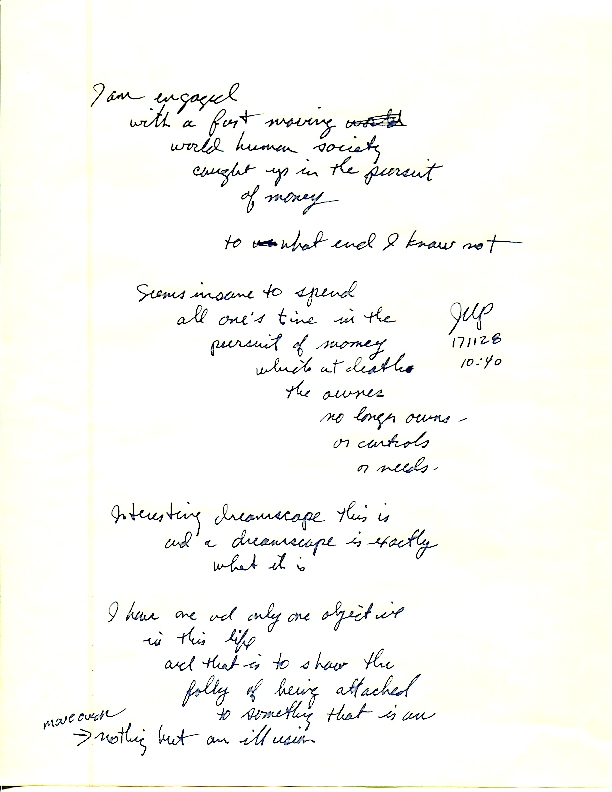 I am engaged
with a fast moving world
world human society
caught up in the pursuit
of money
to what end I know not
Seems insane to spend
all one's time in the
pursuit of money
which at death
the owner
no longer owns -
or controls
or needs.
JMP
171128
10:40
Interesting dreamscape this is
and a dreamscape is exactly
what it is
I have one and only one objective
in this life
and that is to show the
folly of being attached
to something that is an
move over
→ nothing but an illusion.